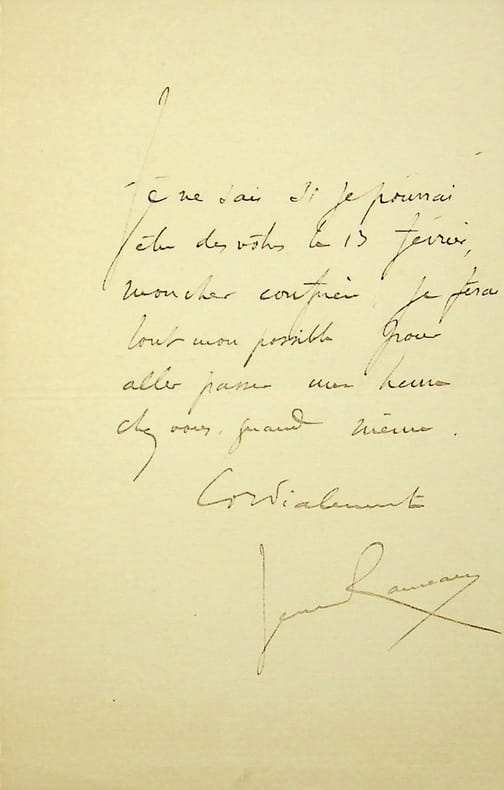 Je ne sais si je pourrai
être des vôtres le 13 février,
mon cher confrère, je ferai
tout mon possible pour
aller passer une heure
chez vous, quand même.
Cordialement
Jean Rameau